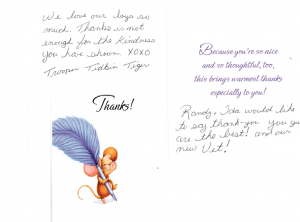 We love our toys so
much. Thanks is not
enough for the kindness
you have shown. XOXO
Trooper Tidbin Tiger
Thanks!
Because you're so nice
and so thoughtful, too,
this brings warmest thanks
especially to you!
Randy, Ida would like
to say thank-you you guys
are the best! and our
new Vet!